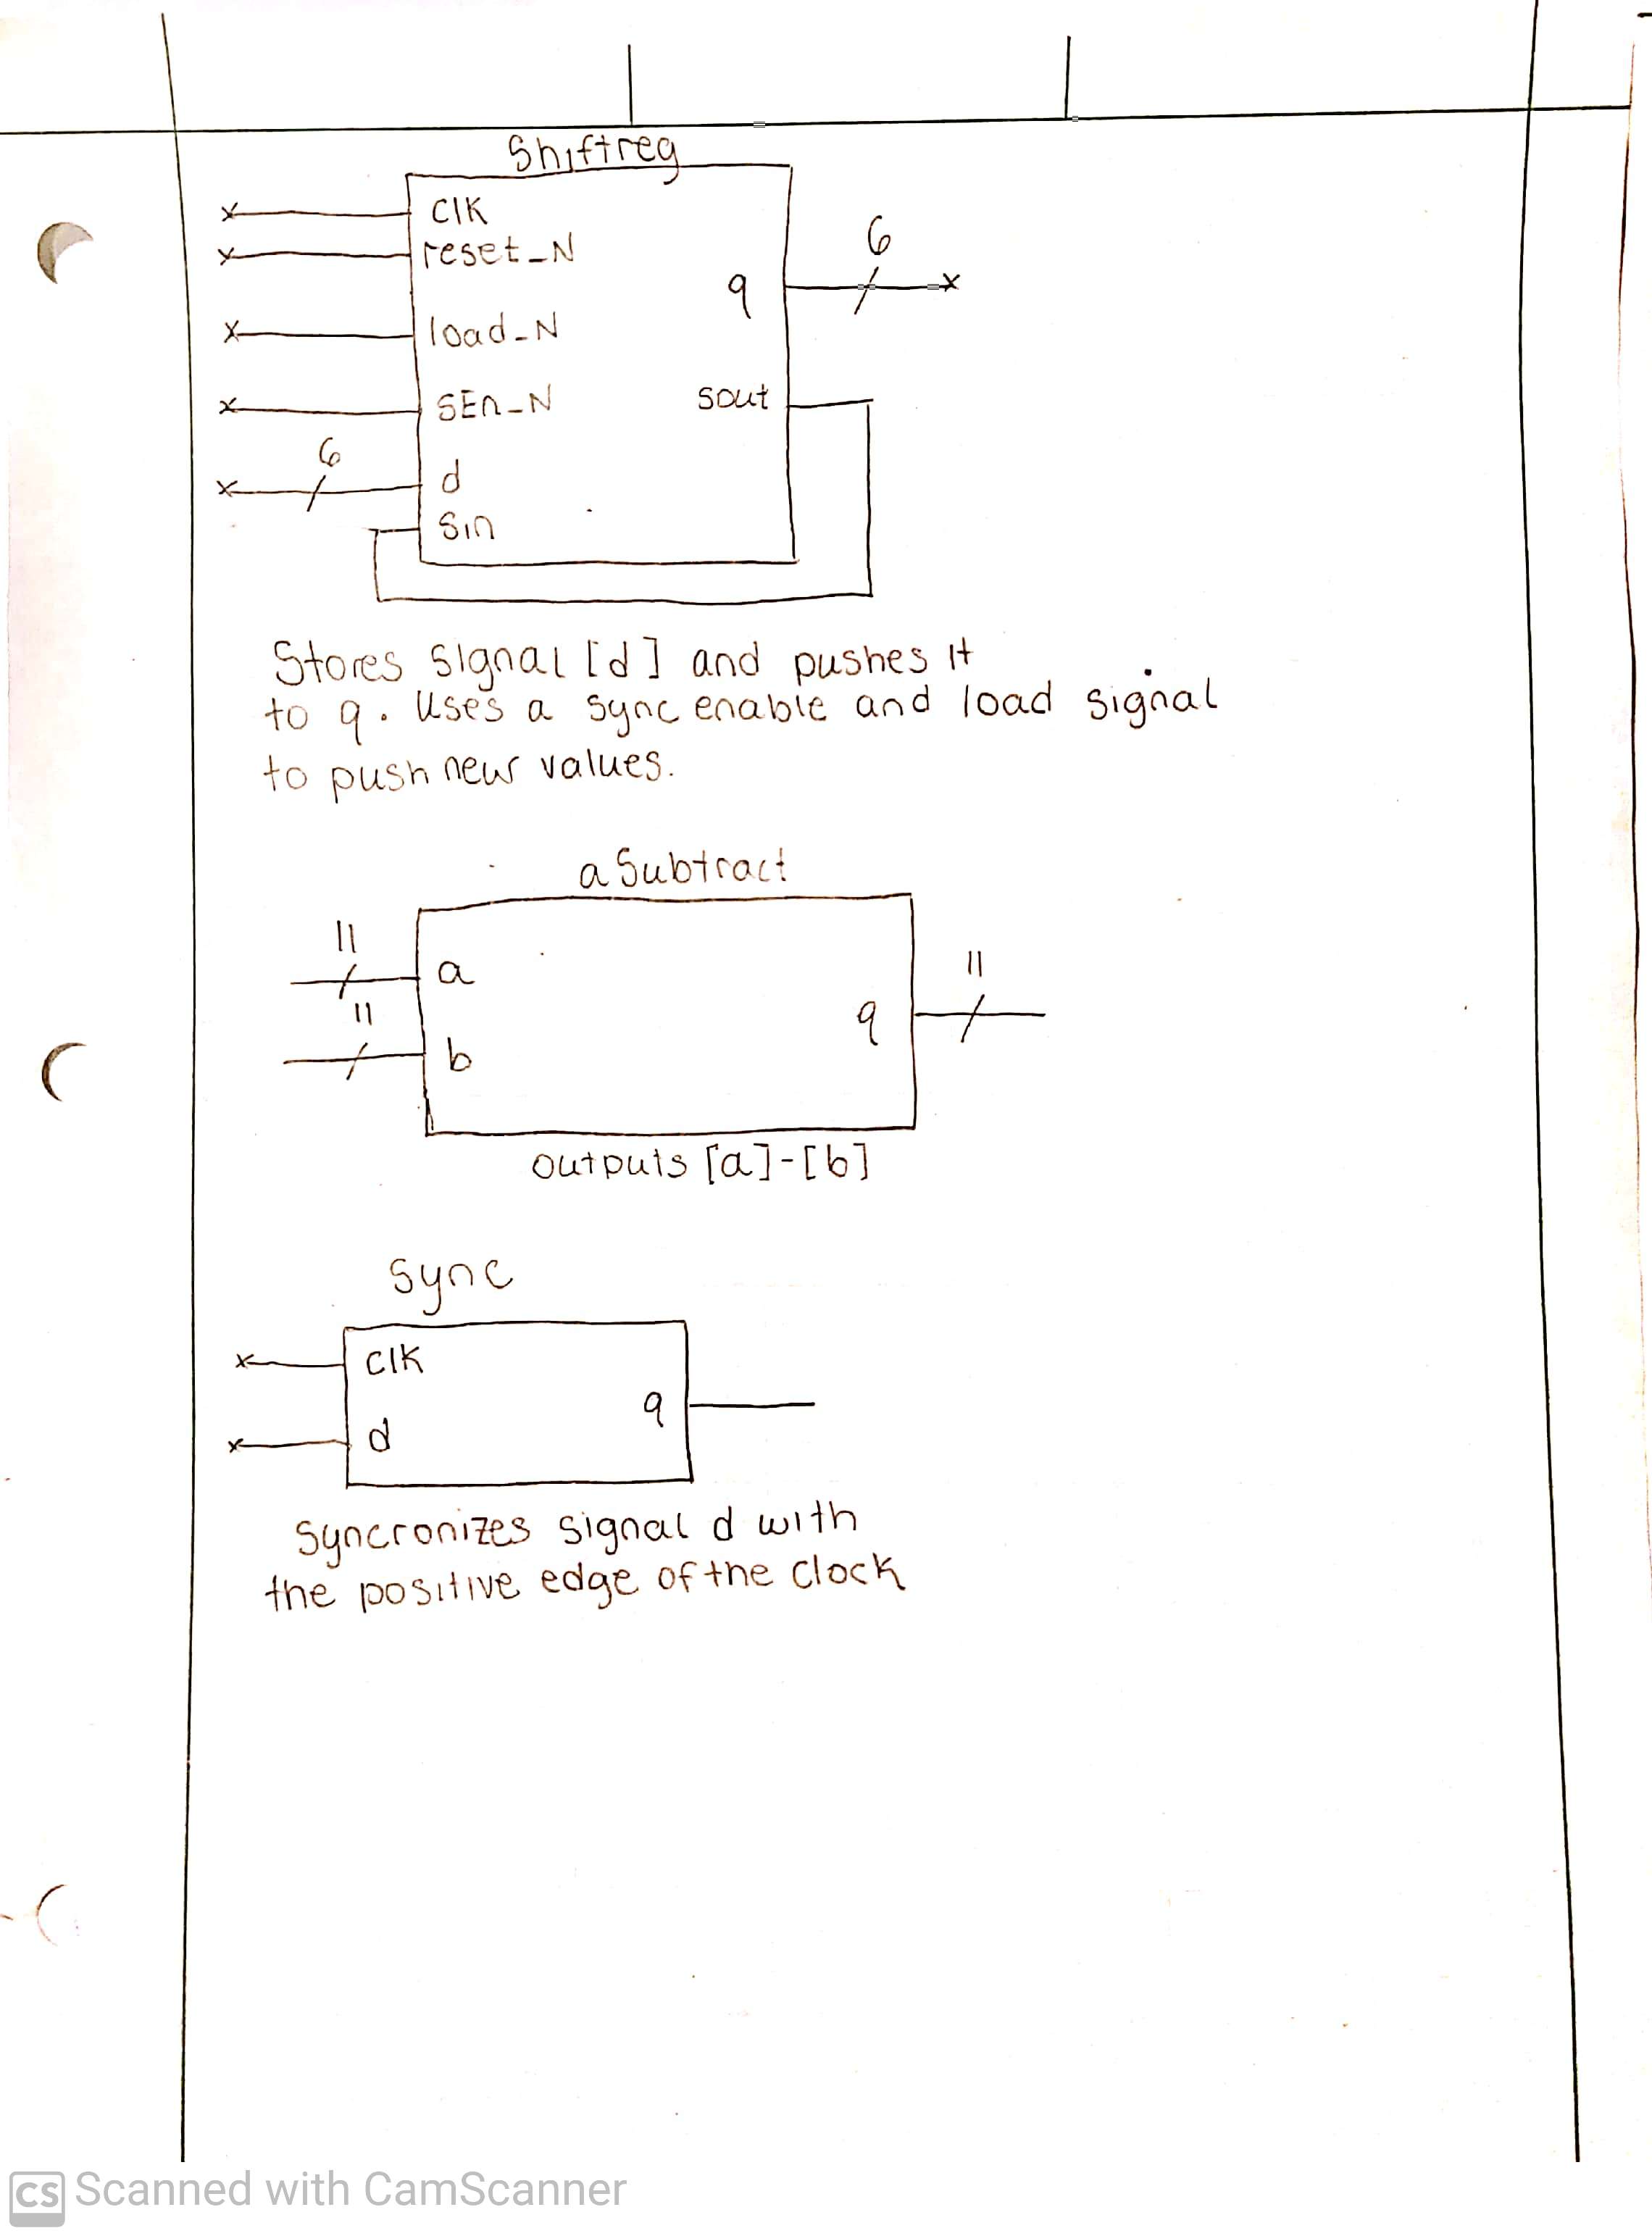 Shiftreg
clk
reset_N
6
q
load_N
SEn_N
sout
6
d
Sin
Stores signal [d] and pushes it
to q. Uses a sync enable and load signal
to push new values.
aSubtract
11
a
11
11
q
b
outputs [a]-[b]
Sync
clk
q
d
Syncronizes signal d with
the positive edge of the clock
CS Scanned with CamScanner